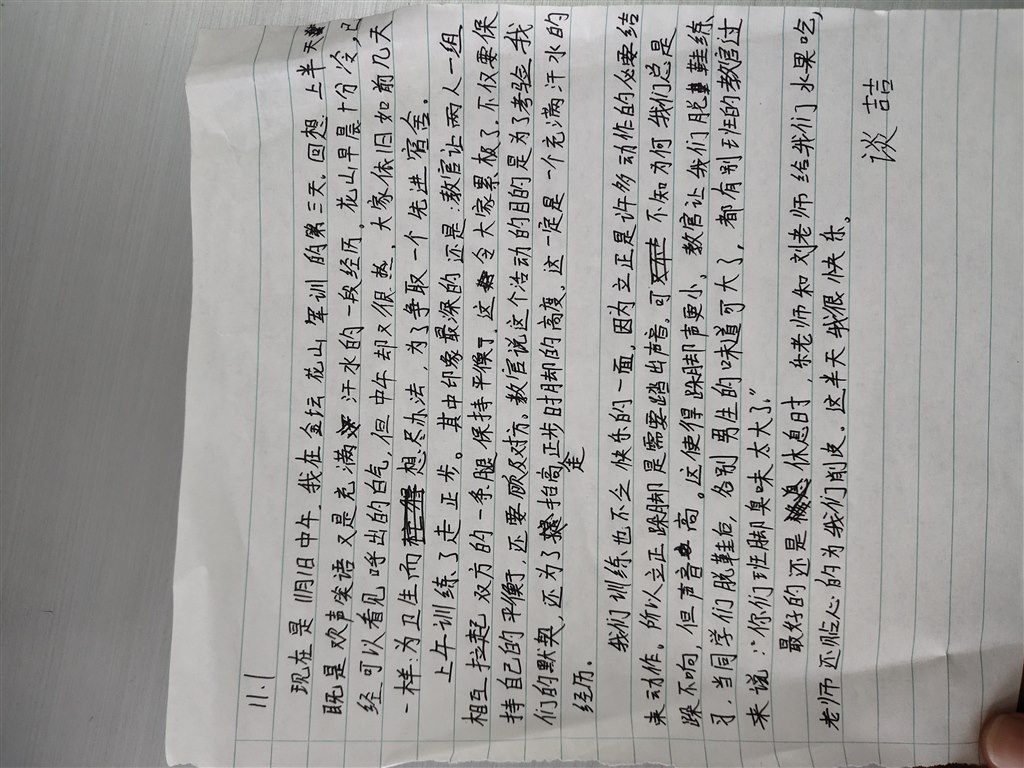 11.1
现在是11月1日中午,我在金坛花山军训的第三天.回想上半天
既是欢声笑语又是充满汗水的一段经历。花山早晨十分冷,已
经可以看见呼出的白气,但中午却又很热.大家依旧如前几天
一样:为卫生而想尽办法,为了争取一个先进宿舍.
上午训练了走正步。其中印象最深的还是:教官让两人一组
相互拉起双方的一条腿保持平衡了.这令大家累极了.不仅要保
持自己的平衡,还要顾及对方。教官说这个活动的目的是为了考验我
们的默契,还为了抬高正步时脚的高度,这一定是一个充满汗水的
走
经历.
我们训练也不乏快乐的一面,因为立正是许多动作的必要结
束动作。所以立正跺脚是需要踏出声音,可不知为何我们总是
跺不响,但声音高。这使得跺脚声更小,教官让我们脱鞋练
习,当同学们脱鞋后,各别男生的味道可大了,都有别班的教官过
来说:“你们班脚臭味太大了.”
最好的还是休息时,朱老师和刘老师给我们水果吃,
老师还贴心的为我们削皮。这半天我很快乐。
谈喆